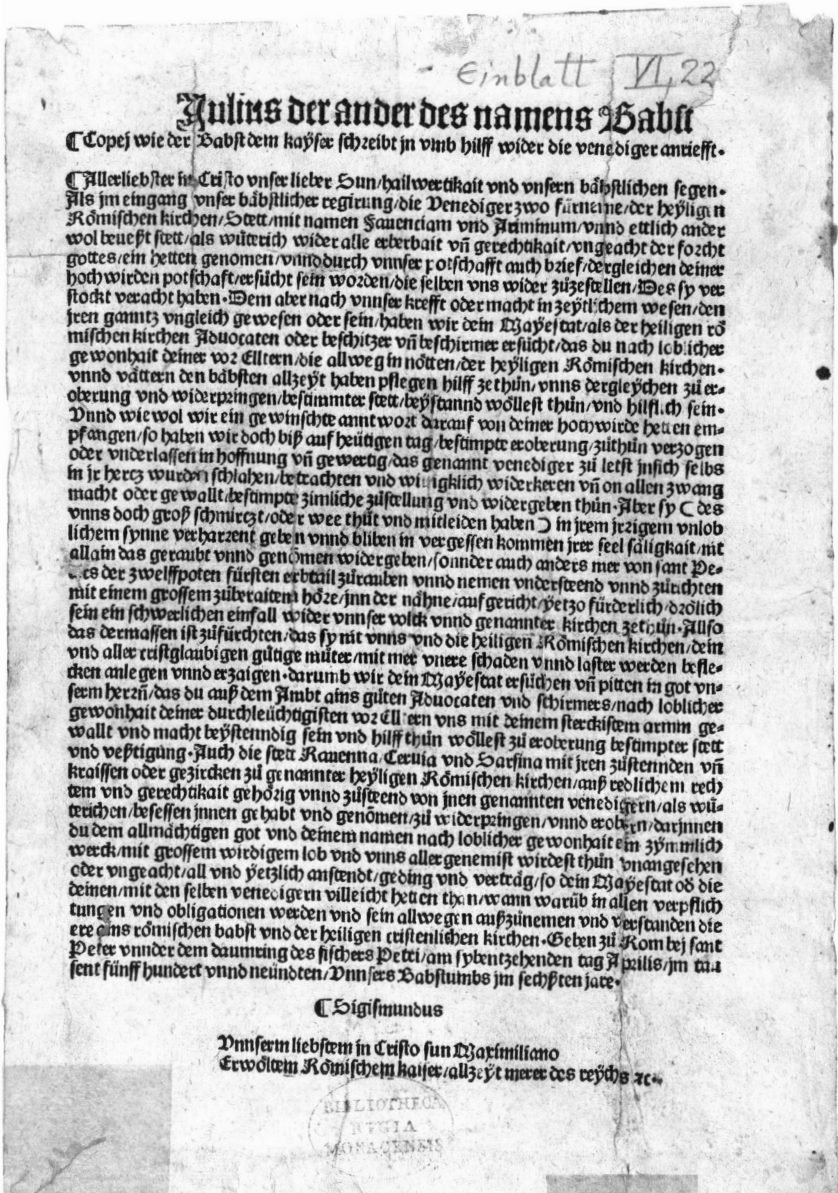 Einblatt VI, 22
Julius der ander des namens Babst
¶ Copej wie der Babst dem kayser schreibt jn vmb hilff wider die venediger anriefft.
¶ Allerliebster in Cristo vnser lieber Sun/hailwertikait vnd vnsern bäbstlichen segen.
Als jm eingang vnser bäbstlicher regirung/die Venediger zwo fürneme/der heyligen
Römischen kirchen/Stett/mit namen Fauenciam vnd Ariminum/vnnd ettlich ander
wol beueßt stett/als wütterich wider alle erberbait vñ gerechtikait/vngeacht der forcht
gottes/ein hetten genomen/vnnd durch vnnser potschafft auch brief/dergleichen deiner
hochwirden potschaft/ersücht sein worden/die selben vns wider züzestellen/Des sy ver
stockt veracht haben. Dem aber nach vnnser krefft oder macht in zeytlichem wesen/den
jren ganntz vngleich gewesen oder sein/haben wir dein Mayestat/als der heiligen rö
mischen kirchen Aduocaten oder beschitzer vñ beschirmer ersücht/das du nach loblicher
gewonhait deiner vor Elltern/die allweg in nötten/der heyligen Römischen kirchen.
vnnd vättern den bäbsten allzeyt haben pflegen hilff ze thün/vnns dergleychen zü er⸗
oberung vnd widerpringen/bestimmter stett/beystannd wöllest thün/vnd hilflich sein.
Vnnd wiewol wir ein gewinschte anntwort darauf von deiner hochwirde hetten em⸗
pfangen/so haben wir doch biß auf heütigen tag/bestimpte eroberung/züthün verzogen
oder vnderlassen in hoffnung vñ gewertig/das genannt venediger zü letst jnsich selbs
in jr hertz wurden schlahen/betrachten vnd willigklich widerkeren vñ on allen zwang
macht oder gewallt/bestimpte zimliche züstellung vnd widergeben thün. Aber sy ( des
vnns doch groß schmirczt/oder wee thüt vnd mitleiden haben ) in jrem jrrigem vnlob
lichem synne verharrent geben vnnd bliben in vergessen kommen jrer seel säligkait/nit
allain das geraubt vnnd genömen widergeben/sonnder auch anders mer von sant Pe⸗
ters der zwelffpoten fürsten erbtail zürauben vnnd nemen vndersteend vnnd zürichten
mit einem grossem züberaitem höre/jnn der nähne/aufgericht/yetzo fürderlich/drölich
sein ein schwerlichen einfall wider vnnser volck vnnd genannter kirchen zethün. Allso
das dermassen ist züfürchten/das sy nit vnns vnd die heiligen Römischen kirchen/dein
vnd aller cristglaubigen gütige müter/mit mer vnere schaden vnnd laster werden befle⸗
cken anlegen vnnd erzaigen. darumb wir dein Mayestat ersüchen vñ pitten in got vn⸗
serm herrn/das du auß dem Ambt ains güten Aduocaten vnd schirmers/nach loblicher
gewonhait deiner durchleüchtigisten vor Elltern vns mit deinem sterckistem armm ge⸗
wallt vnd macht beystenndig sein vnd hilff thün wöllest zü eroberung bestimpter stett
vnd veßtigüng. Auch die stett Rauenna/Ceruia vnd Sarsina mit jren züstennden vñ
kraissen oder gezircken zü genannter heyligen Römischen kirchen/auß redlichem rech
tem vnd gerechtikait gehörig vnnd züsteend von jnen genannten venedigern/als wü⸗
terichen/besessen jnnen gehabt vnd genömen/zü widerpringen/vnnd erobern/darjnnen
du dem allmächtigen got vnd deinem namen nach loblicher gewonhait ein zymmlich
werck/mit grossem wirdigem lob vnd vnns aller genemist wirdest thün vnangesehen
oder vngeacht/all vnd yetzlich anstendt/geding vnd verträg/so dein Mayestat oð die
deinen/mit den selben venedigern villeicht hetten than/wann warüb in allen verpflich
tungen vnd obligationen werden vnd sein allwegen außzünemen vnd verstanden die
ere ains römischen babst vnd der heiligen cristenlichen kirchen. Geben zü Rom bej sant
Peter vnnder dem daumring des fischers Petri/am sybentzehenden tag Aprilis/jm tau
sent fünff hundert vnnd neündten/Vnnsers Babstumbs jm sechßten jare.
¶ Sigismundus
Vnnserm liebstem in Cristo sun Maximiliano
Erwöltem Römischem kaiser/allzeyt merer des reychs ꝛc.
BIBLIOTHECA
REGIA
MONACENSIS